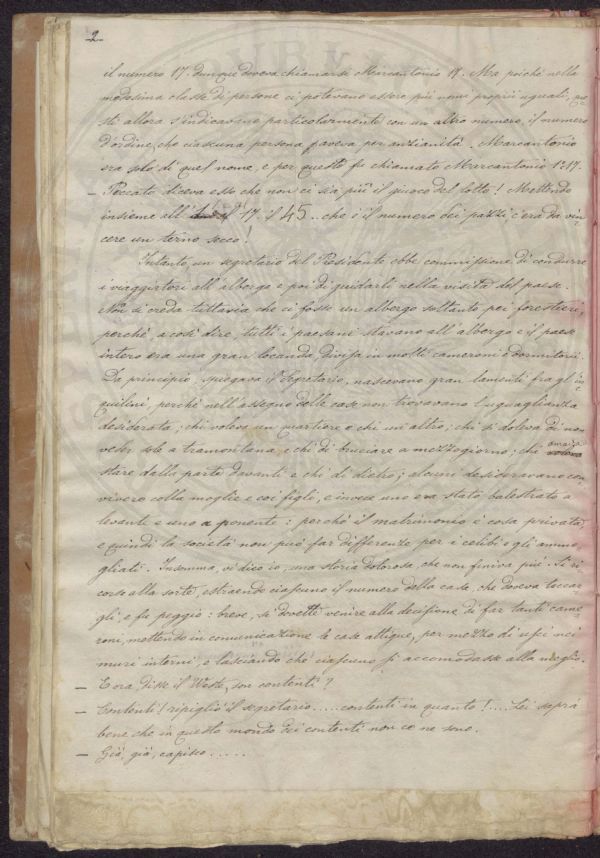 2
il numero 17. dunque doveva chiamarsi Marcantonio 17. Ma poichè nella
medesima classe di persone ci potevano essere più nomi proprii uguali, que
sti allora s'indicavano particolarmente con un altro numero, il numero
d'ordine, che ciascuna persona aveva per anzianità. Marcantonio
era solo di quel nome, e per questo fu chiamato Marcantonio 1º 17.
— Peccato, diceva esso che non ci sia più il giuoco del lotto! Mettendo
insieme all' 17. il 45.. che è il numero dei pazzi, c'era da vin
cere un terno secco!
Intanto un segretario del Presidente ebbe commissione di condurre
i viaggiatori all'albergo e poi di guidarli nella visita del paese.
Non si creda tuttavia che ci fosse un albergo soltanto pei forestieri,
perchè, a così dire, tutti i paesani stavano all'albergo e il paese
intero era una gran locanda, divisa in molti cameroni e dormitorii.
Da principio, spiegava il Segretario, nascevano gran lamenti fra gl'in
quilini, perchè nell'assegno delle case non trovavano l'uguaglianza
desiderata; chi voleva un quartiere e chi un altro; chi si doleva di non
veder sole a tramontana, e chi di bruciare a mezzogiorno; chi voleva
stare dalla parte davanti e chi di dietro; alcuni desideravano con
vivere colla moglie e coi figli, e invece uno era stato balestrato a
levante e uno a ponente: perchè il matrimonio è cosa privata,
e quindi la società non può far differenze per i celibi o gli ammo
gliati. Insomma, vi dico io, una storia dolorosa, che non finiva più. Si ri
corse alla sorte, estraendo ciascuno il numero della casa, che doveva toccar
gli, e fu peggio: breve, si dovette venire alla decisione di far tanti came
roni, mettendo in comunicazione le case attigue, per mezzo di usci nei
muri interni, e lasciando che ciascuno si accomodasse alla meglio.
— E ora, disse il Weste, son contenti?
— Contenti! ripigliò il segretario..... contenti in quanto!.... Lei saprà
bene che in questo mondo dei contenti non ce ne sono.
— Già, già, capisco.....